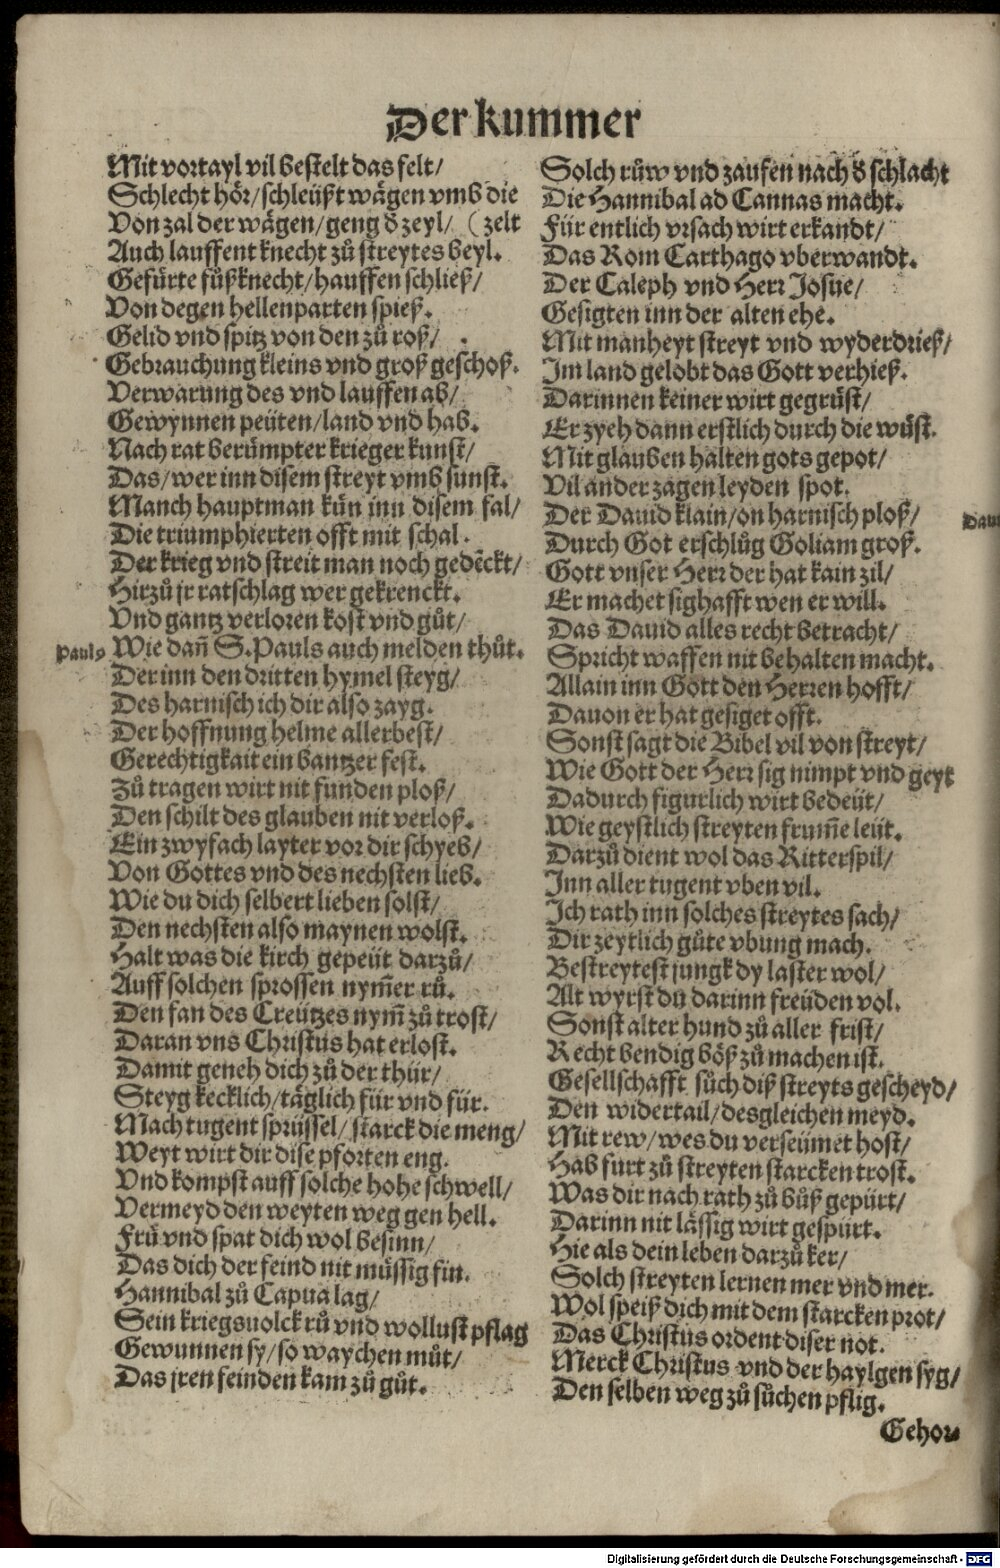 Der kummer
Mit vortayl vil bestelt das felt/
Schlecht hör/schleüßt wägen vmb die
Von zal der wägen/geng d̕ zeyl/ (zelt
Auch lauffent knecht zů streytes beyl.
Gefürte fůßknecht/hauffen schließ/
Von degen hellenparten spieß.
Gelid vnd spitz von den zů roß/
Gebrauchung kleins vnd groß geschoß.
Verwarung des vnd lauffen ab/
Gewynnen peüten/land vnd hab.
Nach rat berümpter krieger kunst/
Das/wer inn disem streyt vmb sunst.
Manch hauptman kün inn disem fal/
Die triumphierten offt mit schal.
Der krieg vnd streit man noch gedēckt/
Hirzů jr ratschlag wer gekrenckt.
Vnd gantz verloren kost vnd gůt/
Pauls Wie dañ S. Pauls auch melden thůt.
Der inn den dritten hymel steyg/
Des harnisch ich dir also zayg.
Der hoffnung helme allerbest/
Gerechtigkait ein bantzer fest.
Zů tragen wirt nit funden ploß/
Den schilt des glauben nit verloß.
Ein zwyfach layter vor dir schyeb/
Von Gottes vnd des nechsten lieb.
Wie du dich selbert lieben solst/
Den nechsten also maynen wolst.
Halt was die kirch gepeüt darzů/
Auff solchen sprossen nym̄er rů.
Den fan des Creützes nym̄ zů trost/
Daran vns Christus hat erlost.
Damit geneh dich zů der thür/
Steyg kecklich/täglich für vnd für.
Mach tugent sprüssel/starck die meng/
Weyt wirt dir dise pforten eng.
Vnd kompst auff solche hohe schwell/
Vermeyd den weyten weg gen hell.
Frü vnd spat dich wol besinn/
Das dich der feind nit müssig fin.
Hannibal zů Capua lag/
Sein kriegsuolck rů vnd wollust pflag
Gewunnen sy/so waychen můt/
Das jren feinden kam zů gůt.
Solch růw vnd zaufen nach d̕ schlacht
Die Hannibal ad Cannas macht.
Für entlich vrsach wirt erkandt/
Das Rom Carthago vberwandt.
Der Caleph vnd Herr Josue/
Gesigten inn der alten ehe.
Mit manheyt streyt vnd wyderdrieß/
Im land gelobt das Gott verhieß.
Darinnen keiner wirt gegrüst/
Er zyeh dann erstlich durch die wüst.
Mit glauben halten gots gepot/
Vil ander zagen leyden spot.
Der Dauid klain/on harnisch ploß/
Durch Got erschlůg Goliam groß.
Gott vnser Herr der hat kain zil/
Er machet sighafft wen er will.
Das Dauid alles recht betracht/
Spricht waffen nit behalten macht.
Allain inn Gott den Herren hofft/
Dauon er hat gesiget offt.
Sonst sagt die Bibel vil von streyt/
Wie Gott der Herr sig nimpt vnd geyt
Dadurch figurlich wirt bedeüt/
Wie geystlich streyten frum̄e leüt.
Darzů dient wol das Ritterspil/
Inn aller tugent vben vil.
Ich rath inn solches streytes sach/
Dir zeytlich gůte vbung mach.
Bestreytest jungk dy laster wol/
Alt wyrst du darinn freüden vol.
Sonst alter hund zů aller frist/
Recht bendig böß zů machen ist.
Gesellschafft sůch diß streyts gescheyd/
Den widertail/desgleichen meyd.
Mit rew/wes du verseümet host/
Hab furt zů streyten starcken trost.
Was dir nach rath zů bůß gepürt/
Darinn nit lässig wirt gespürt.
Hie als dein leben darzů ker/
Solch streyten lernen mer vnd mer.
Wol speiß dich mit dem starcken prot/
Das Christus ordent diser not.
Merck Christus vnd der haylgen syg/
Den selben weg zů sůchen pflig.
Gehor⸗
Digitalisierung gefördert durch die Deutsche Forschungsgemeinschaft - DFG